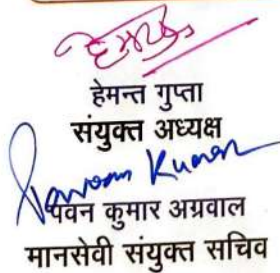 हेमन्त गुप्ता
संयुक्त अध्यक्ष
Kumar
पवन कुमार अग्रवाल
मानसेवी संयुक्त सचिव